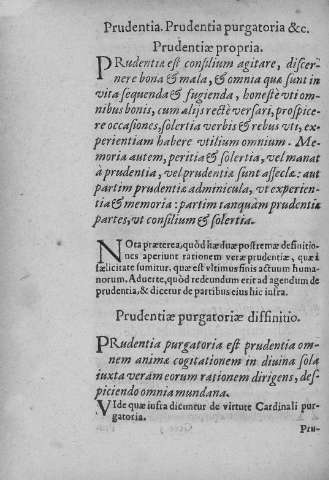 Prudentia. Prudentia purgatoria &c.
Prudentiæ propria.
PRudentia est consilium agitare, discer-
nere bona & mala, & omnia quæ sunt in
vita sequenda & fugienda, honestè vti om-
nibus bonis, cum alijs rectè versari, prospice-
re occasiones, solertia verbis & rebus vti, ex-
perientiam habere vtilium omnium. Me-
moria autem, peritia & solertia, vel manat
à prudentia, vel prudentia sunt asseclæ: aut
partim prudentia adminicula, vt experien-
tia & memoria: partim tanquàm prudentiæ
partes, vt consilium & solertia.
NOta præterea, quòd hæ duæ postremæ definitio-
nes aperiunt rationem veræ prudentiæ, quæ i
fælicitate sumitur, quæ est vltimus finis actuum huma-
norum. Aduerte, quòd redeundum erit ad agendum de
prudentia, & dicetur de partibus eius hic infra.
Prudentiæ purgatoriæ diffinitio.
PRudentia purgatoria est prudentia om-
nem animæ cogitationem in diuina sola
iuxta verám eorum rationem dirigens, des-
piciendo omnia mundana.
VIde quæ infra dicuntur de virtute Cardinali pur-
gatoria.
Pru-